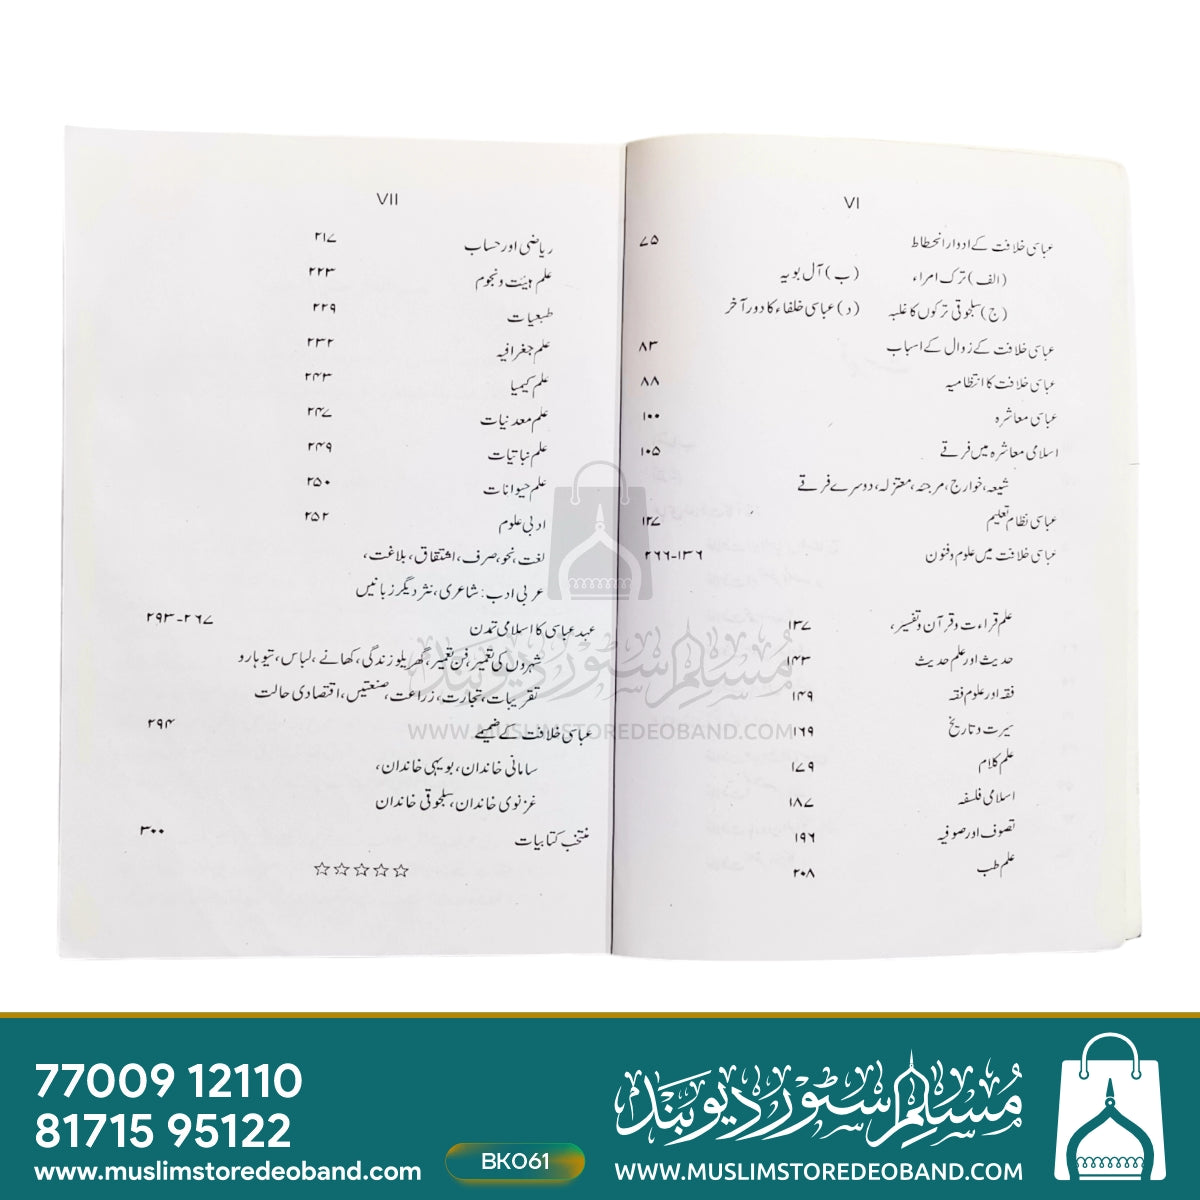 VI
عباسی خلافت کے ادوار انحطاط ۷۵
(الف) ترک امراء (ب) آل بویہ
(ج) سلجوقی ترکوں کا غلبہ (د) عباسی خلفاء کا دور آخر
عباسی خلافت کے زوال کے اسباب ۸۳
عباسی خلافت کا انتظامیہ ۸۸
عباسی معاشرہ ۱۰۰
اسلامی معاشرہ میں فرقے ۱۰۵
شیعہ، خوارج، مرجئہ، معتزلہ، دوسرے فرقے
عباسی نظام تعلیم ۱۲۷
عباسی خلافت میں علوم و فنون ۱۳۶-۲۶۶
علم قراءت و قرآن و تفسیر، ۱۳۷
حدیث اور علم حدیث ۱۴۳
فقہ اور علوم فقہ ۱۴۹
سیرت و تاریخ ۱۶۹
علم کلام ۱۷۹
اسلامی فلسفہ ۱۸۷
تصوف اور صوفیہ ۱۹۶
علم طب ۲۰۸
VII
ریاضی اور حساب ۲۱۷
علم ہیئت و نجوم ۲۲۳
طبعیات ۲۲۹
علم جغرافیہ ۲۳۲
علم کیمیا ۲۴۳
علم معدنیات ۲۴۷
علم نباتیات ۲۴۹
علم حیوانات ۲۵۰
ادبی علوم ۲۵۲
لغت، نحو، صرف، اشتقاق، بلاغت،
عربی ادب: شاعری، نثر دیگر زبانیں
عہد عباسی کا اسلامی تمدن ۲۶۷-۲۹۳
شہروں کی تعمیر، فن تعمیر، گھریلو زندگی، کھانے، لباس، تیوہار و
تقریبات، تجارت، زراعت، صنعتیں، اقتصادی حالت
عباسی خلافت کے ضمیمے ۲۹۴
سامانی خاندان، بویہی خاندان،
غزنوی خاندان، سلجوقی خاندان
منتخب کتابیات ۳۰۰
☆☆☆☆☆
مسلم سٹور دیوبند
WWW.MUSLIMSTOREDEOBAND.COM
77009 12110
81715 95122
www.muslimstoredeoband.com
BK061
مسلم سٹور دیوبند
WWW.MUSLIMSTOREDEOBAND.COM